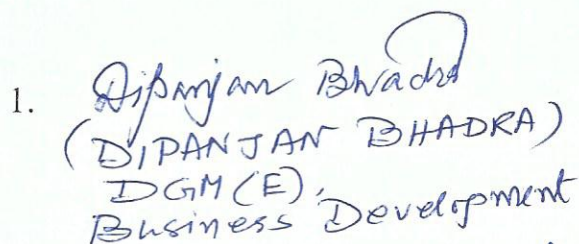 1. Dipanjan Bhadra
(DIPANJAN BHADRA)
DGM (E),
Business Development